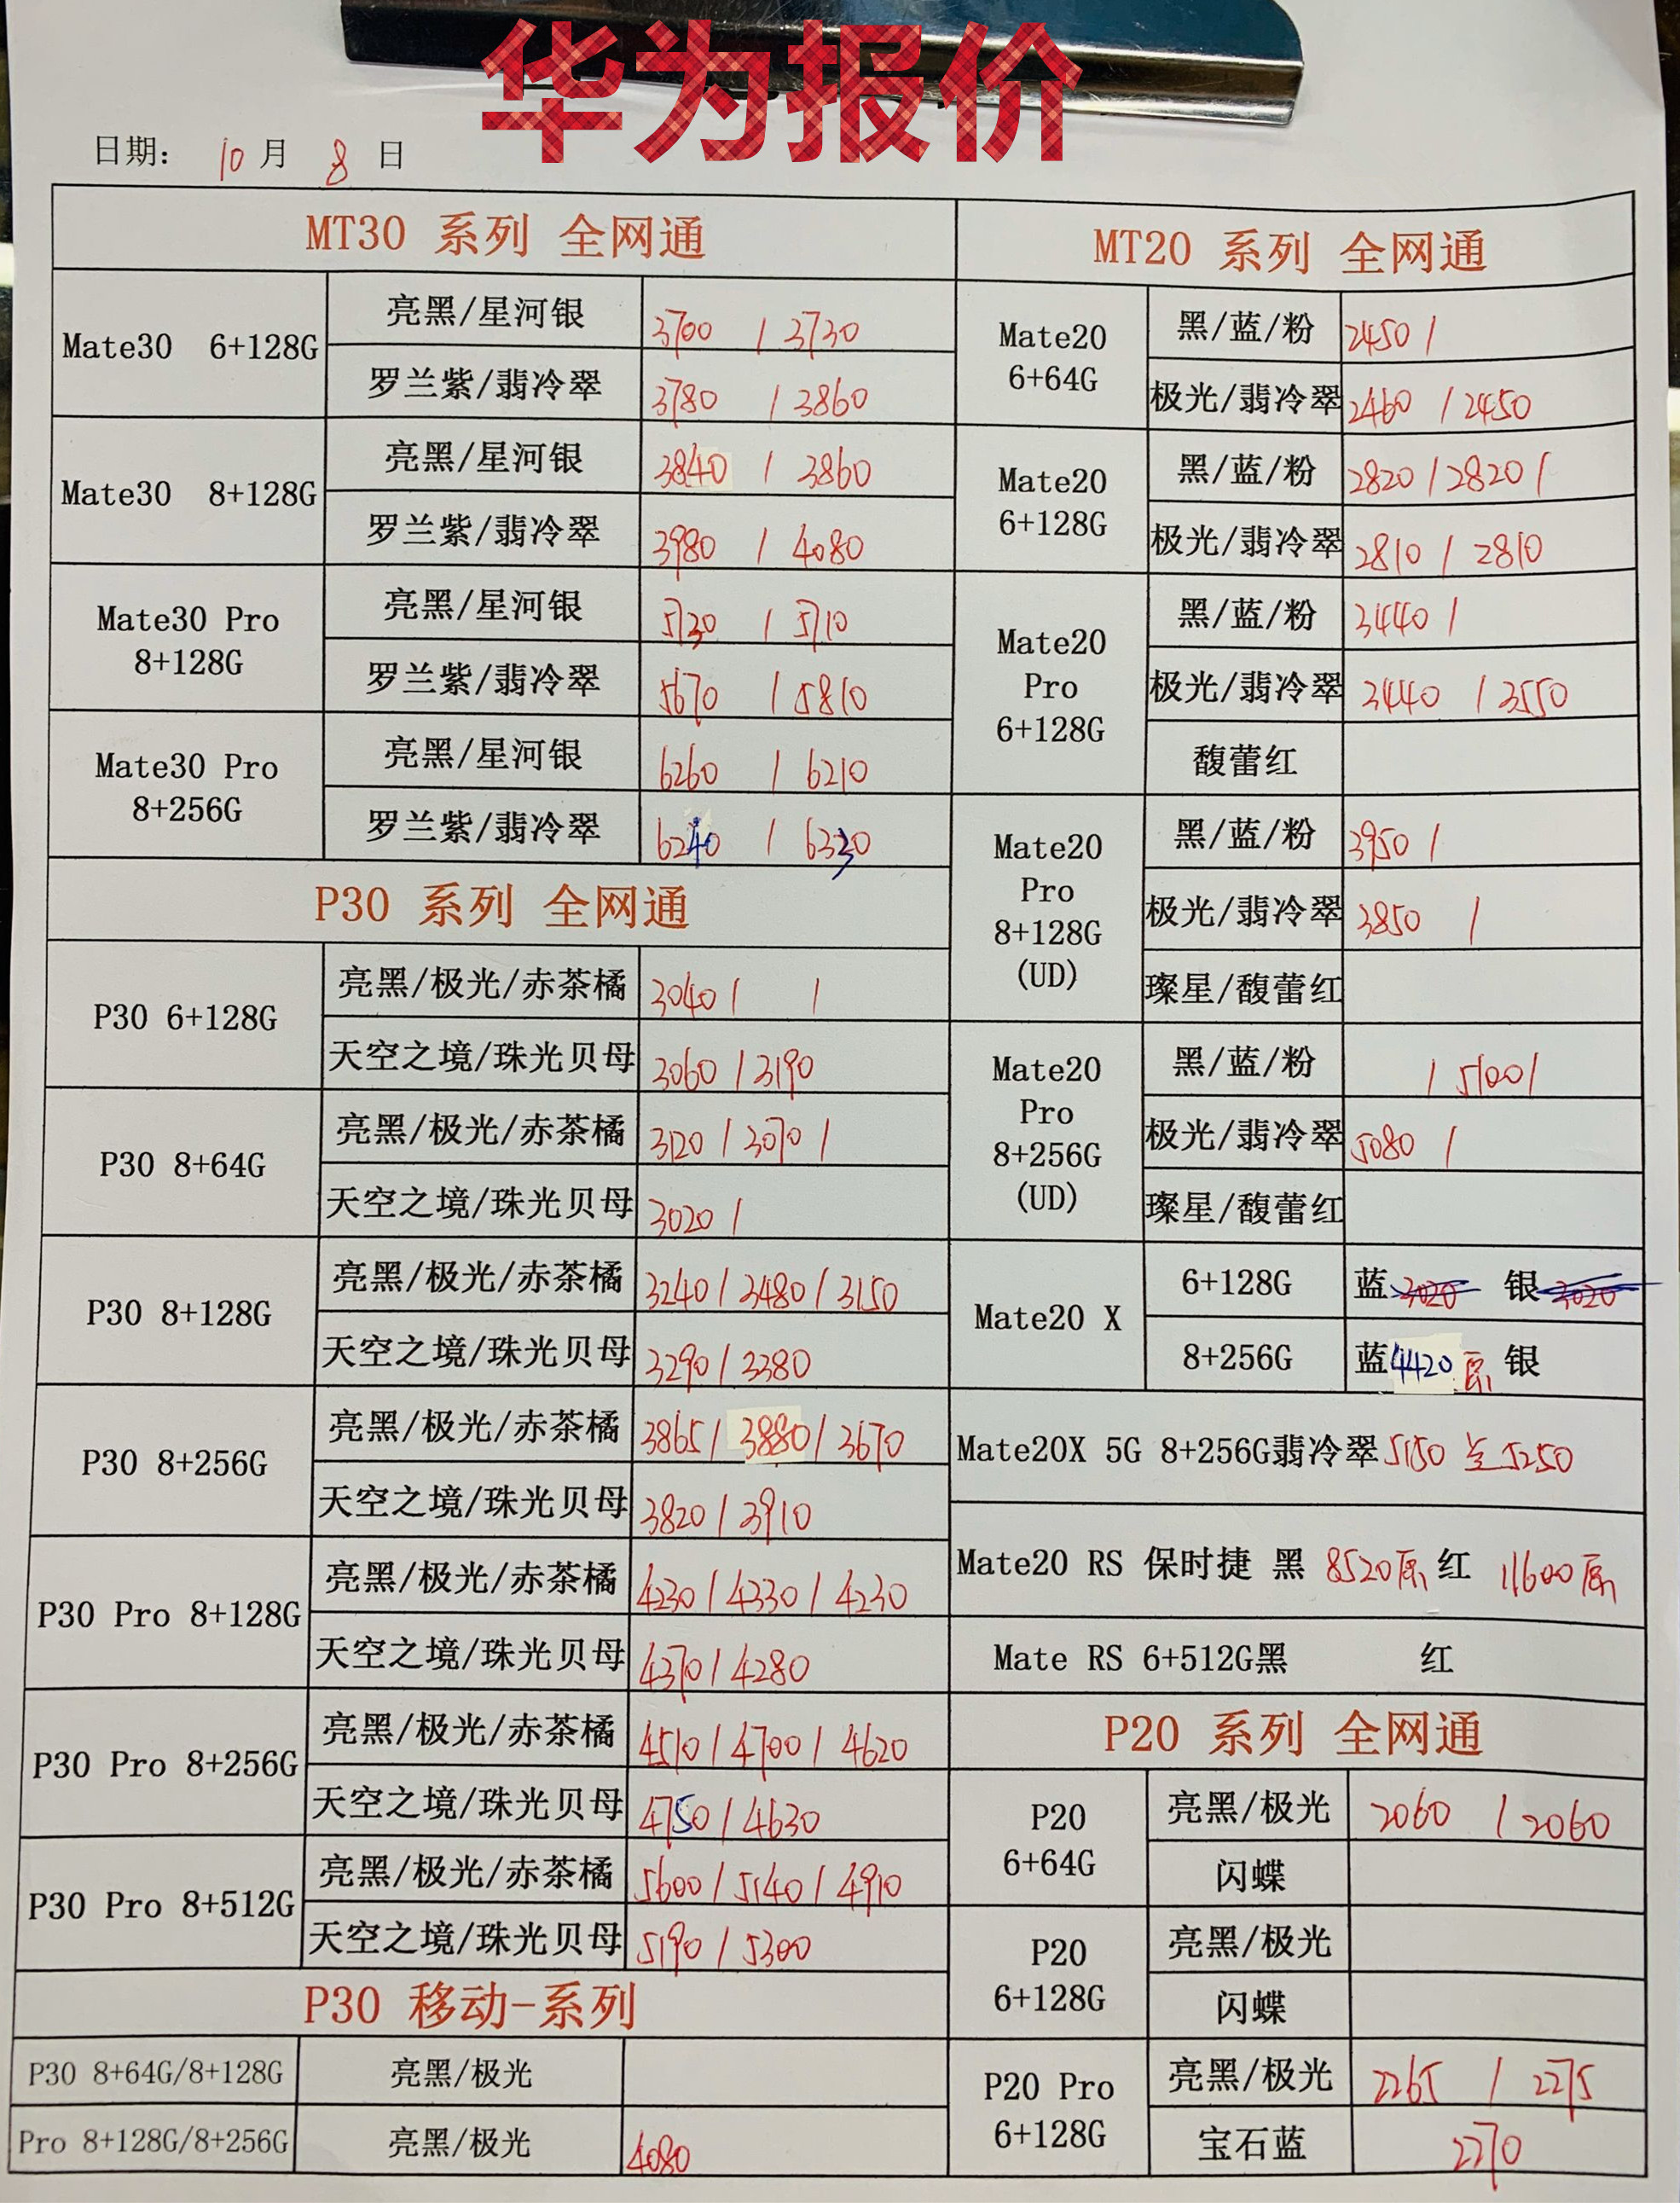 华为报价
日期： 10 月 8 日
MT30 系列 全网通
Mate30 6+128G
亮黑/星河银 3700 / 3730
罗兰紫/翡冷翠 3780 / 3860
Mate30 8+128G
亮黑/星河银 3840 / 3860
罗兰紫/翡冷翠 3980 / 4080
Mate30 Pro
8+128G
亮黑/星河银 5730 / 5710
罗兰紫/翡冷翠 5670 / 5810
Mate30 Pro
8+256G
亮黑/星河银 6260 / 6210
罗兰紫/翡冷翠 6240 / 6330
P30 系列 全网通
P30 6+128G
亮黑/极光/赤茶橘 3040 / /
天空之境/珠光贝母 3060 / 3190
P30 8+64G
亮黑/极光/赤茶橘 3120 / 3070 /
天空之境/珠光贝母 3020 /
P30 8+128G
亮黑/极光/赤茶橘 3240 / 3480 / 3150
天空之境/珠光贝母 3290 / 3380
P30 8+256G
亮黑/极光/赤茶橘 3865 / 3880 / 3670
天空之境/珠光贝母 3820 / 3910
P30 Pro 8+128G
亮黑/极光/赤茶橘 4230 / 4330 / 4230
天空之境/珠光贝母 4370 / 4280
P30 Pro 8+256G
亮黑/极光/赤茶橘 4510 / 4700 / 4620
天空之境/珠光贝母 4750 / 4630
P30 Pro 8+512G
亮黑/极光/赤茶橘 5600 / 5140 / 4910
天空之境/珠光贝母 5190 / 5300
P30 移动-系列
P30 8+64G/8+128G 亮黑/极光
Pro 8+128G/8+256G 亮黑/极光 4080
MT20 系列 全网通
Mate20
6+64G
黑/蓝/粉 2450 /
极光/翡冷翠 2460 / 2450
Mate20
6+128G
黑/蓝/粉 2820 / 2820 /
极光/翡冷翠 2810 / 2810
Mate20
Pro
6+128G
黑/蓝/粉 3440 /
极光/翡冷翠 3440 / 3550
馥蕾红
Mate20
Pro
8+128G
(UD)
黑/蓝/粉 3950 /
极光/翡冷翠 3850 /
璨星/馥蕾红
Mate20
Pro
8+256G
(UD)
黑/蓝/粉 / 5100 /
极光/翡冷翠 5080 /
璨星/馥蕾红
Mate20 X
6+128G 蓝 3020 银 3020
8+256G 蓝 4420 原 银
Mate20X 5G 8+256G翡冷翠 5150 5250
Mate20 RS 保时捷 黑 8520原 红 11600原
Mate RS 6+512G黑 红
P20 系列 全网通
P20
6+64G
亮黑/极光 2060 / 2060
闪蝶
P20
6+128G
亮黑/极光
闪蝶
P20 Pro
6+128G
亮黑/极光 2265 / 2275
宝石蓝 2270